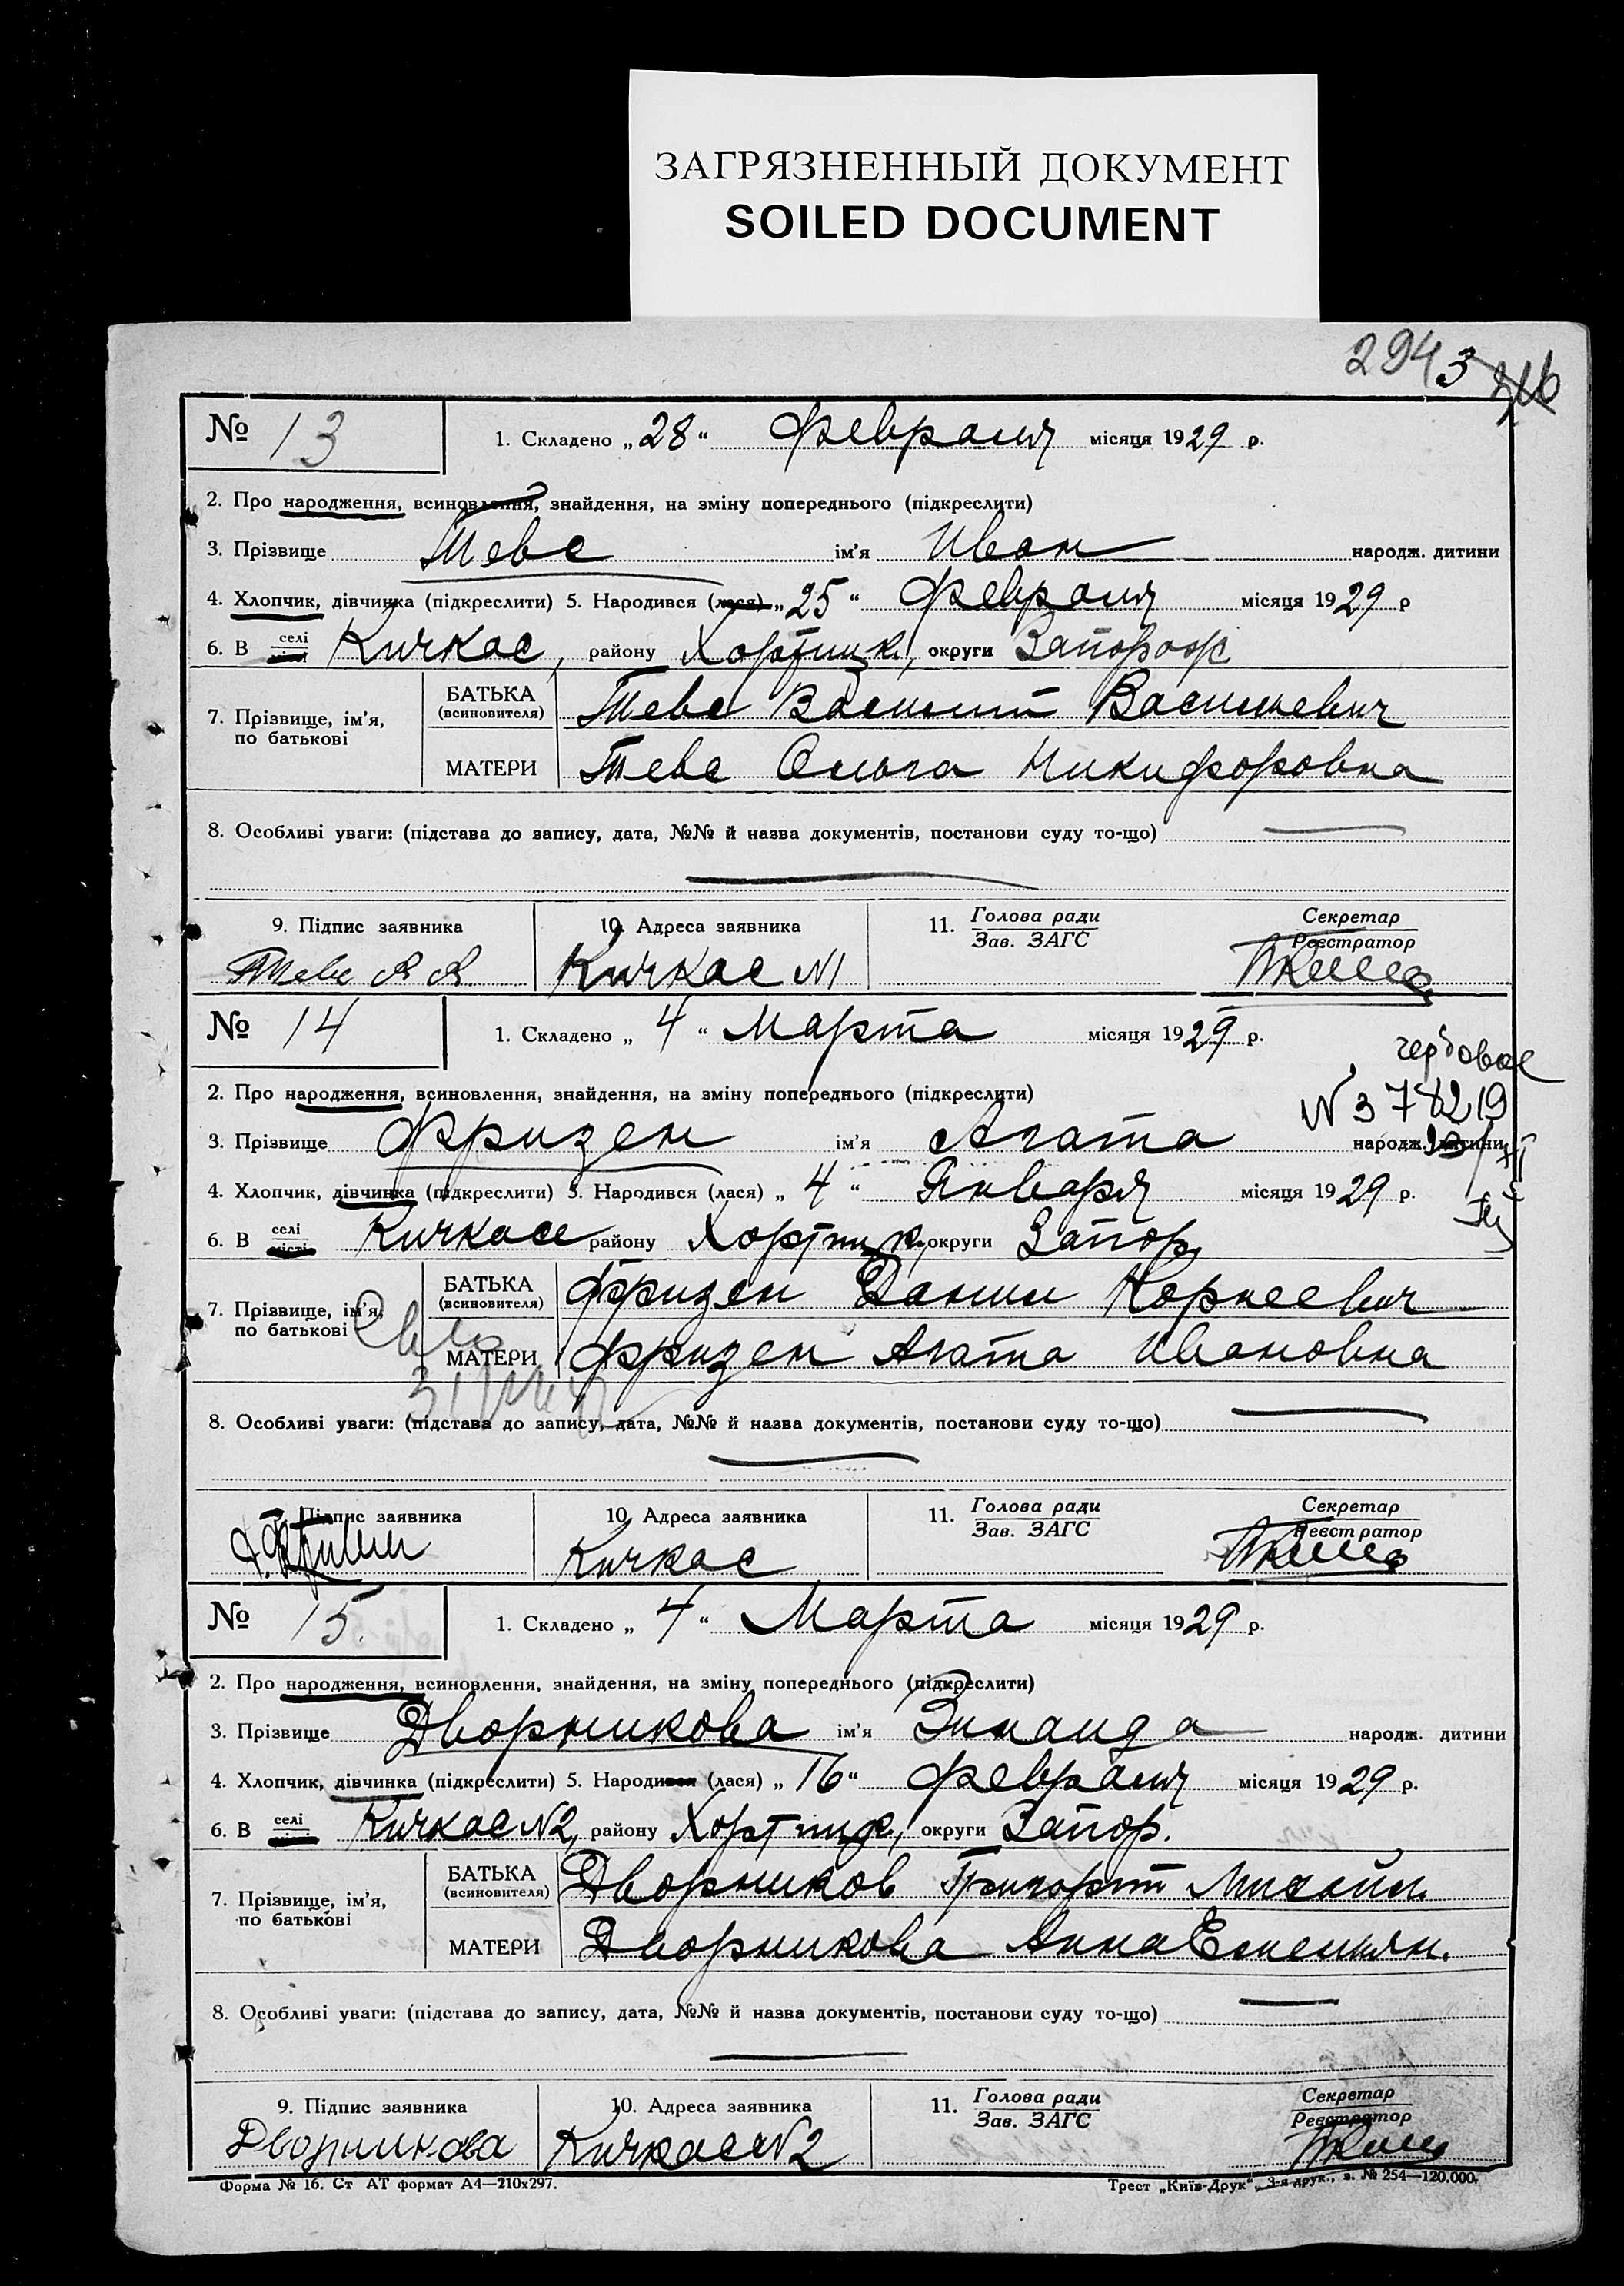 ЗАГРЯЗНЕННЫЙ ДОКУМЕНТ
SOILED DOCUMENT
294 3
№ 13
1. Складено „28“ февраля місяця 1929 р.
2. Про народження, всиновлення, знайдення, на зміну попереднього (підкреслити)
3. Прізвище Тевс ім'я Иван народж. дитини
4. Хлопчик, дівчинка (підкреслити) 5. Народився (лася) „25“ февраля місяця 1929 р
6. В селі Кичкас, району Хортицк, округи Запорож
7. Прізвище, ім'я, по батькові
БАТЬКА (всиновителя) Тевс Василий Васильевич
МАТЕРИ Тевс Ольга Никифоровна
8. Особливі уваги: (підстава до запису, дата, №№ й назва документів, постанови суду то-що)
9. Підпис заявника 10. Адреса заявника 11. Голова ради Зав. ЗАГС Секретар Реєстратор
Тевс Кичкас N1
№ 14
1. Складено „4“ Марта місяця 1929 р.
2. Про народження, всиновлення, знайдення, на зміну попереднього (підкреслити)
3. Прізвище Фризен ім'я Агата народж. дитини
4. Хлопчик, дівчинка (підкреслити) 5. Народився (лася) „4“ Января місяця 1929 р.
6. В селі Кичкасе району Хортицк, округи Запор
7. Прізвище, ім'я, по батькові
БАТЬКА (всиновителя) Фризен Данил Корнеевич
МАТЕРИ Фризен Агата Ивановна
8. Особливі уваги: (підстава до запису, дата, №№ й назва документів, постанови суду то-що)
Підпис заявника 10. Адреса заявника 11. Голова ради Зав. ЗАГС Секретар Реєстратор
Кичкас
№ 15.
1. Складено „4“ Марта місяця 1929 р.
2. Про народження, всиновлення, знайдення, на зміну попереднього (підкреслити)
3. Прізвище Дворникова ім'я Зинаида народж. дитини
4. Хлопчик, дівчинка (підкреслити) 5. Народився (лася) „16“ февраля місяця 1929 р.
6. В селі Кичкас N2, району Хортицк, округи Запор.
7. Прізвище, ім'я, по батькові
БАТЬКА (всиновителя) Дворников Григорий Михайл.
МАТЕРИ Дворникова Анна Емельян.
8. Особливі уваги: (підстава до запису, дата, №№ й назва документів, постанови суду то-що)
9. Підпис заявника 10. Адреса заявника 11. Голова ради Зав. ЗАГС Секретар Реєстратор
Дворникова Кичкас N2
Форма № 16. Ст АТ формат А4—210х297. Трест „Київ-Друк“, 3-я друк., з. № 254—120.000.